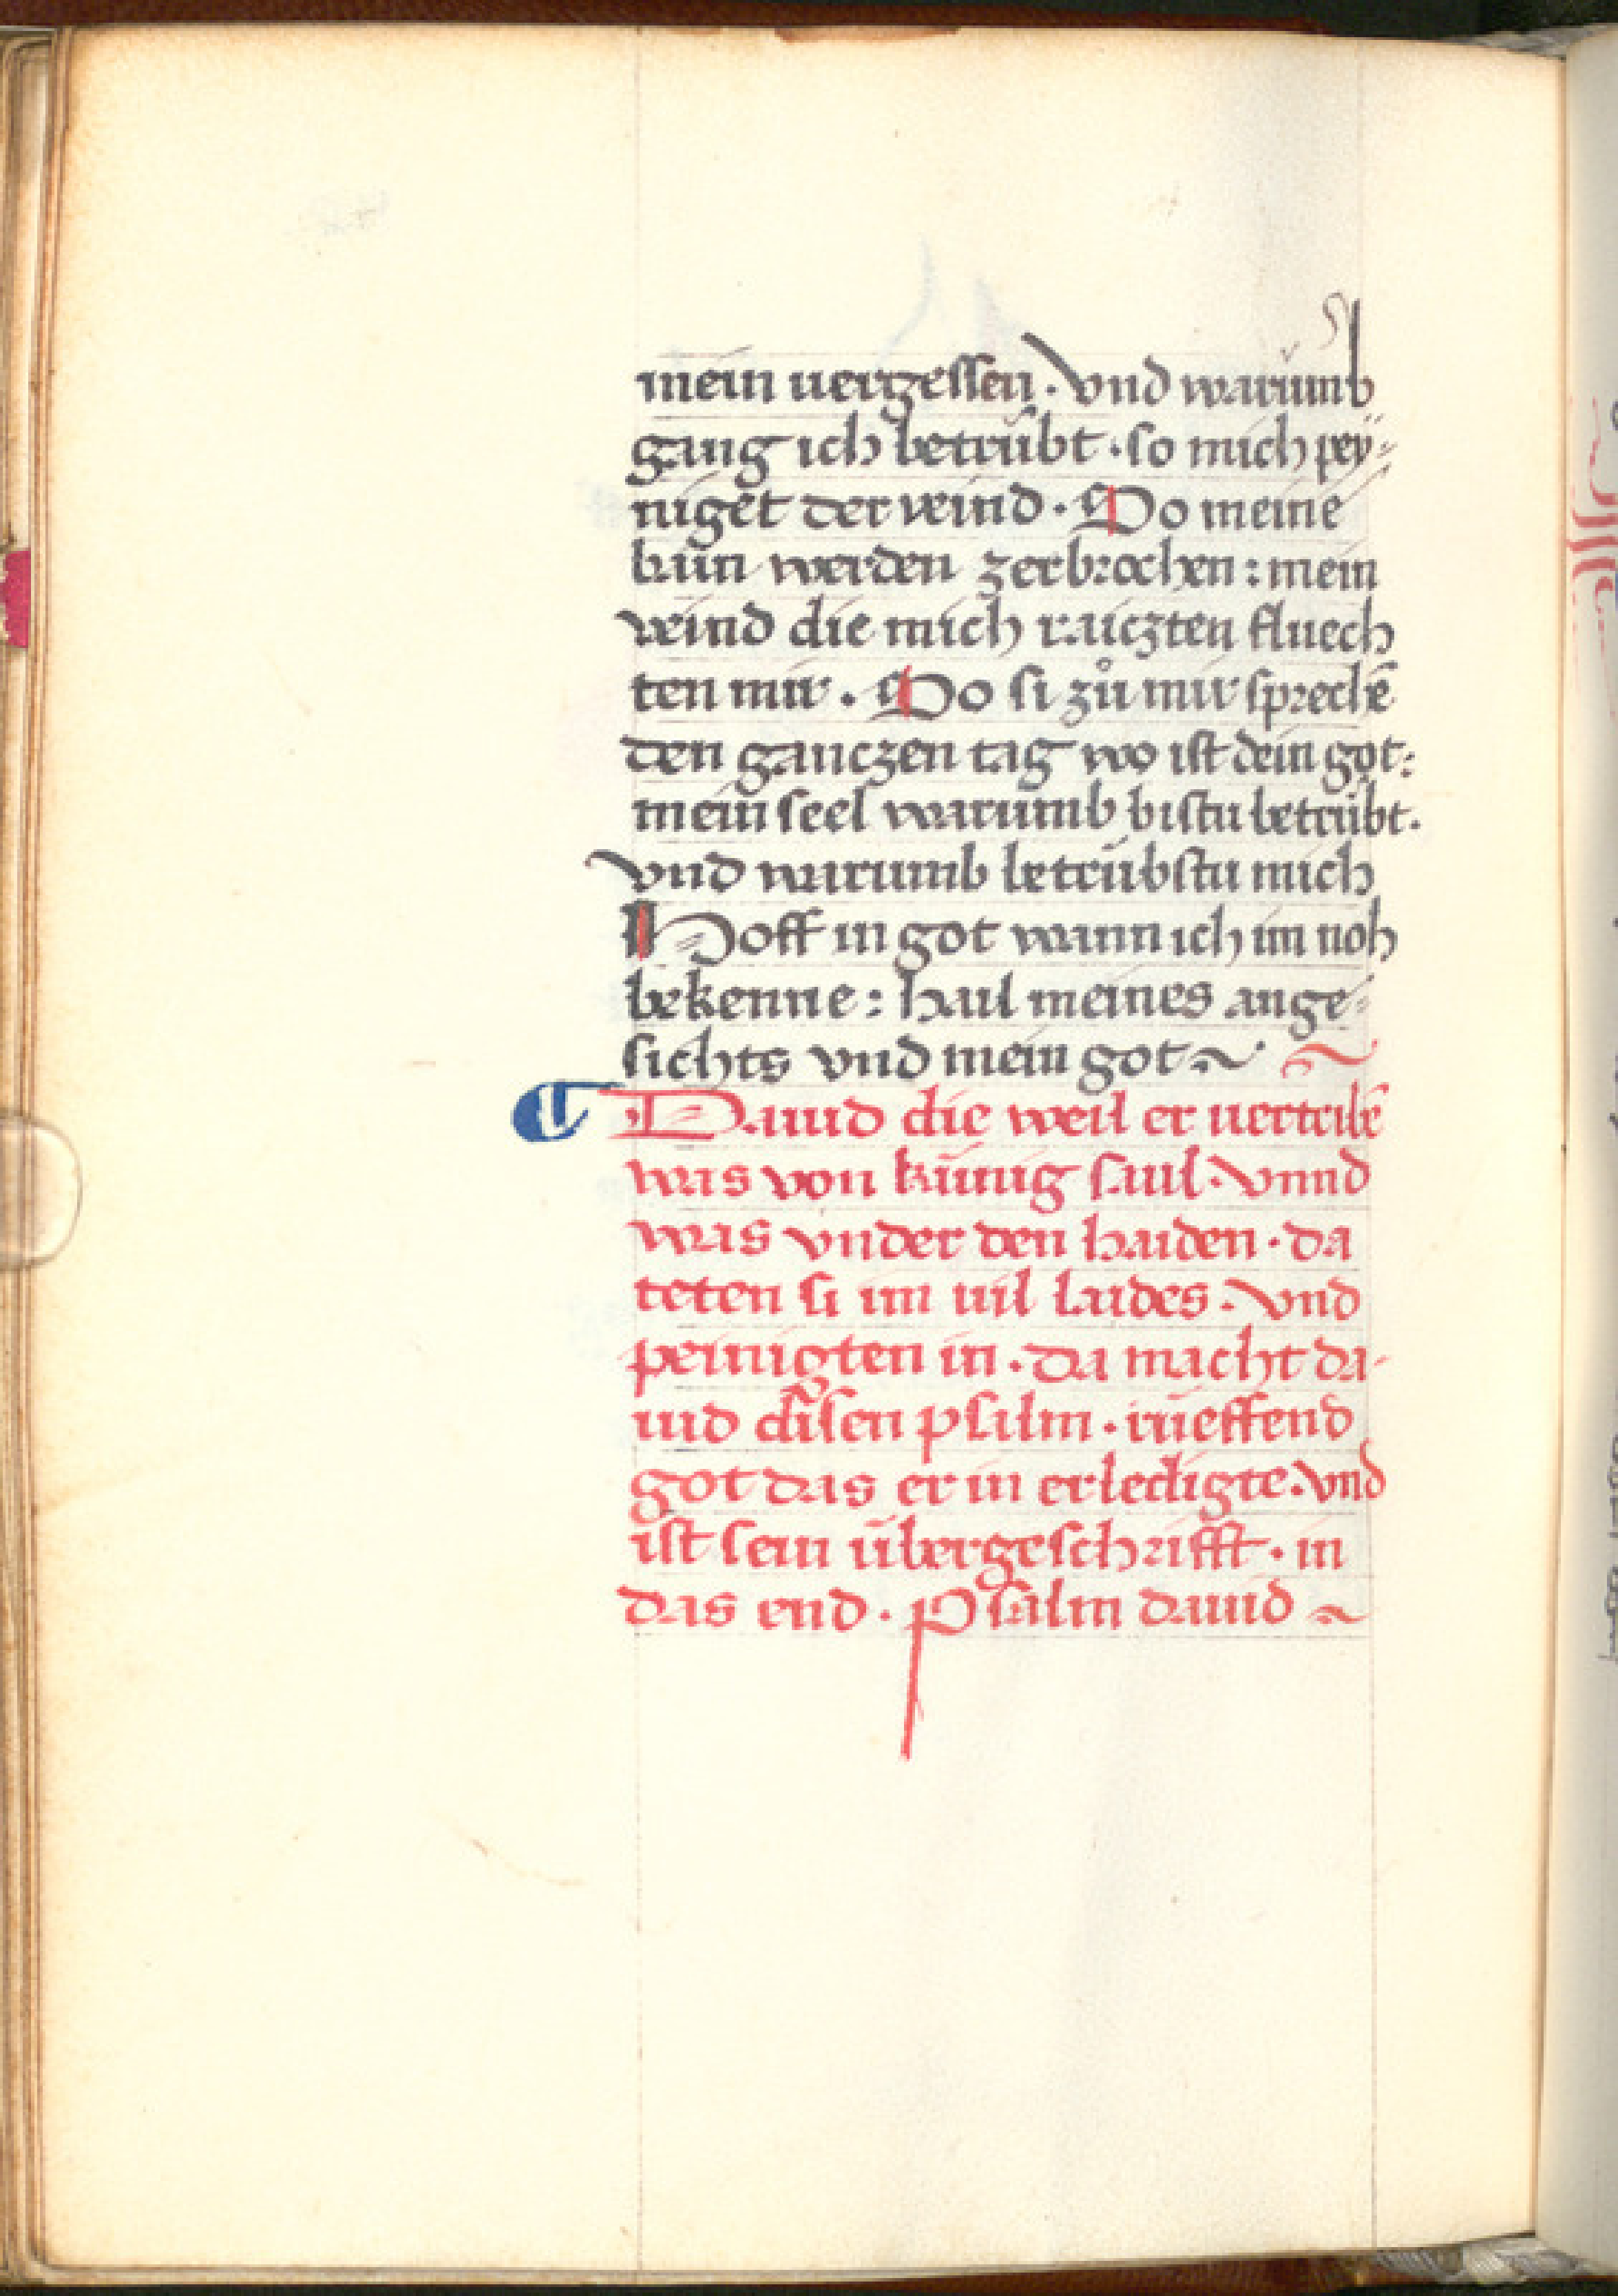 mein uergessen · vnd warumb
gang ich betrübt · so mich pey⸗
niget der veind · So meine
bain werden zerbrochen : mein
veind die mich raiczten fluech
ten mir · So si zů mir sprechē
den ganczen tag wo ist dein got :
mein seel warumb bistu betrübt ·
vnd warumb betrübstu mich
Hoff in got wann ich im noh
bekenne : hail meines ange⸗
sichts vnd mein got ~
¶ Dauid die weil er uertribē
was von künig saul · vnnd
was vnder den haiden · da
teten si im uil laides · vnd
peinigten in · da macht da-
uid disen psalm · rüeffend
got das er in erledigte · vnd
ist sein übergeschrifft · in
das end · Psalm dauid ~